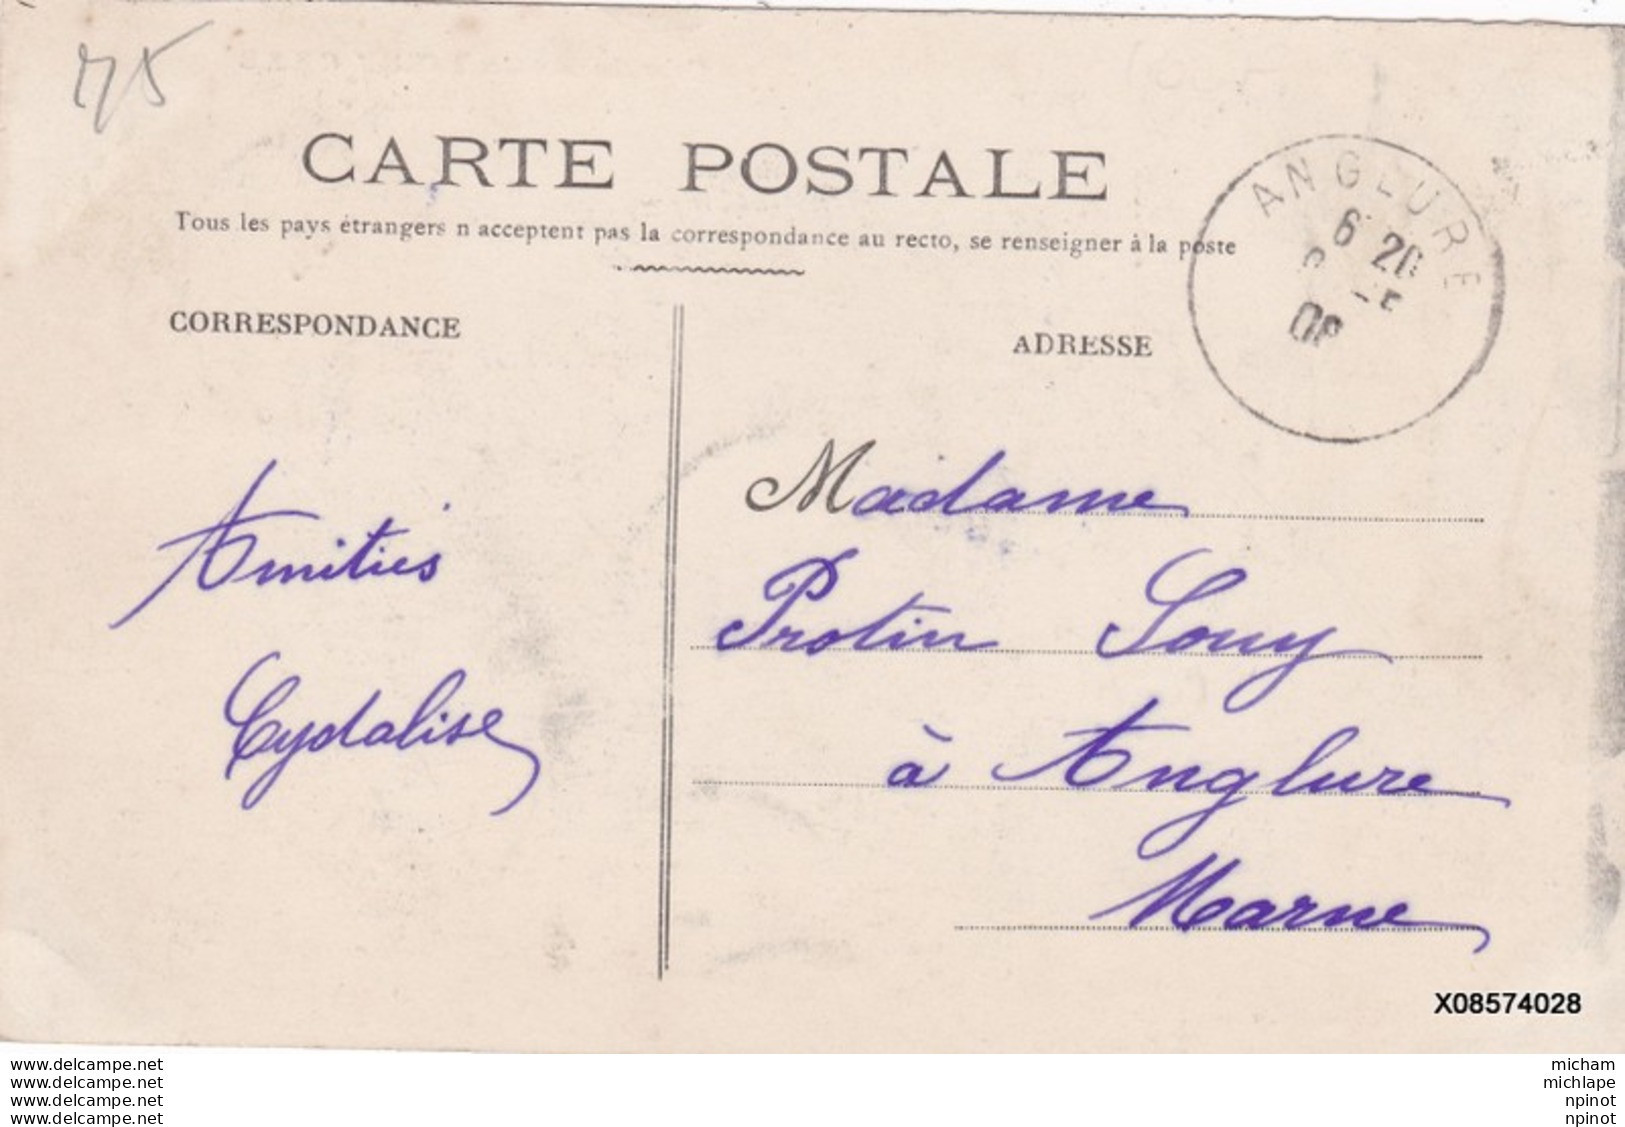 75
CARTE POSTALE
Tous les pays étrangers n acceptent pas la correspondance au recto, se renseigner à la poste
ANGLURE
6 20
CORRESPONDANCE
ADRESSE
Amitiés
Cydalise
Madame
Protin Souy
à Anglure
Marne
X08574028
www.delcampe.net
www.delcampe.net
www.delcampe.net
www.delcampe.net
micham
michlape
npinot
npinot